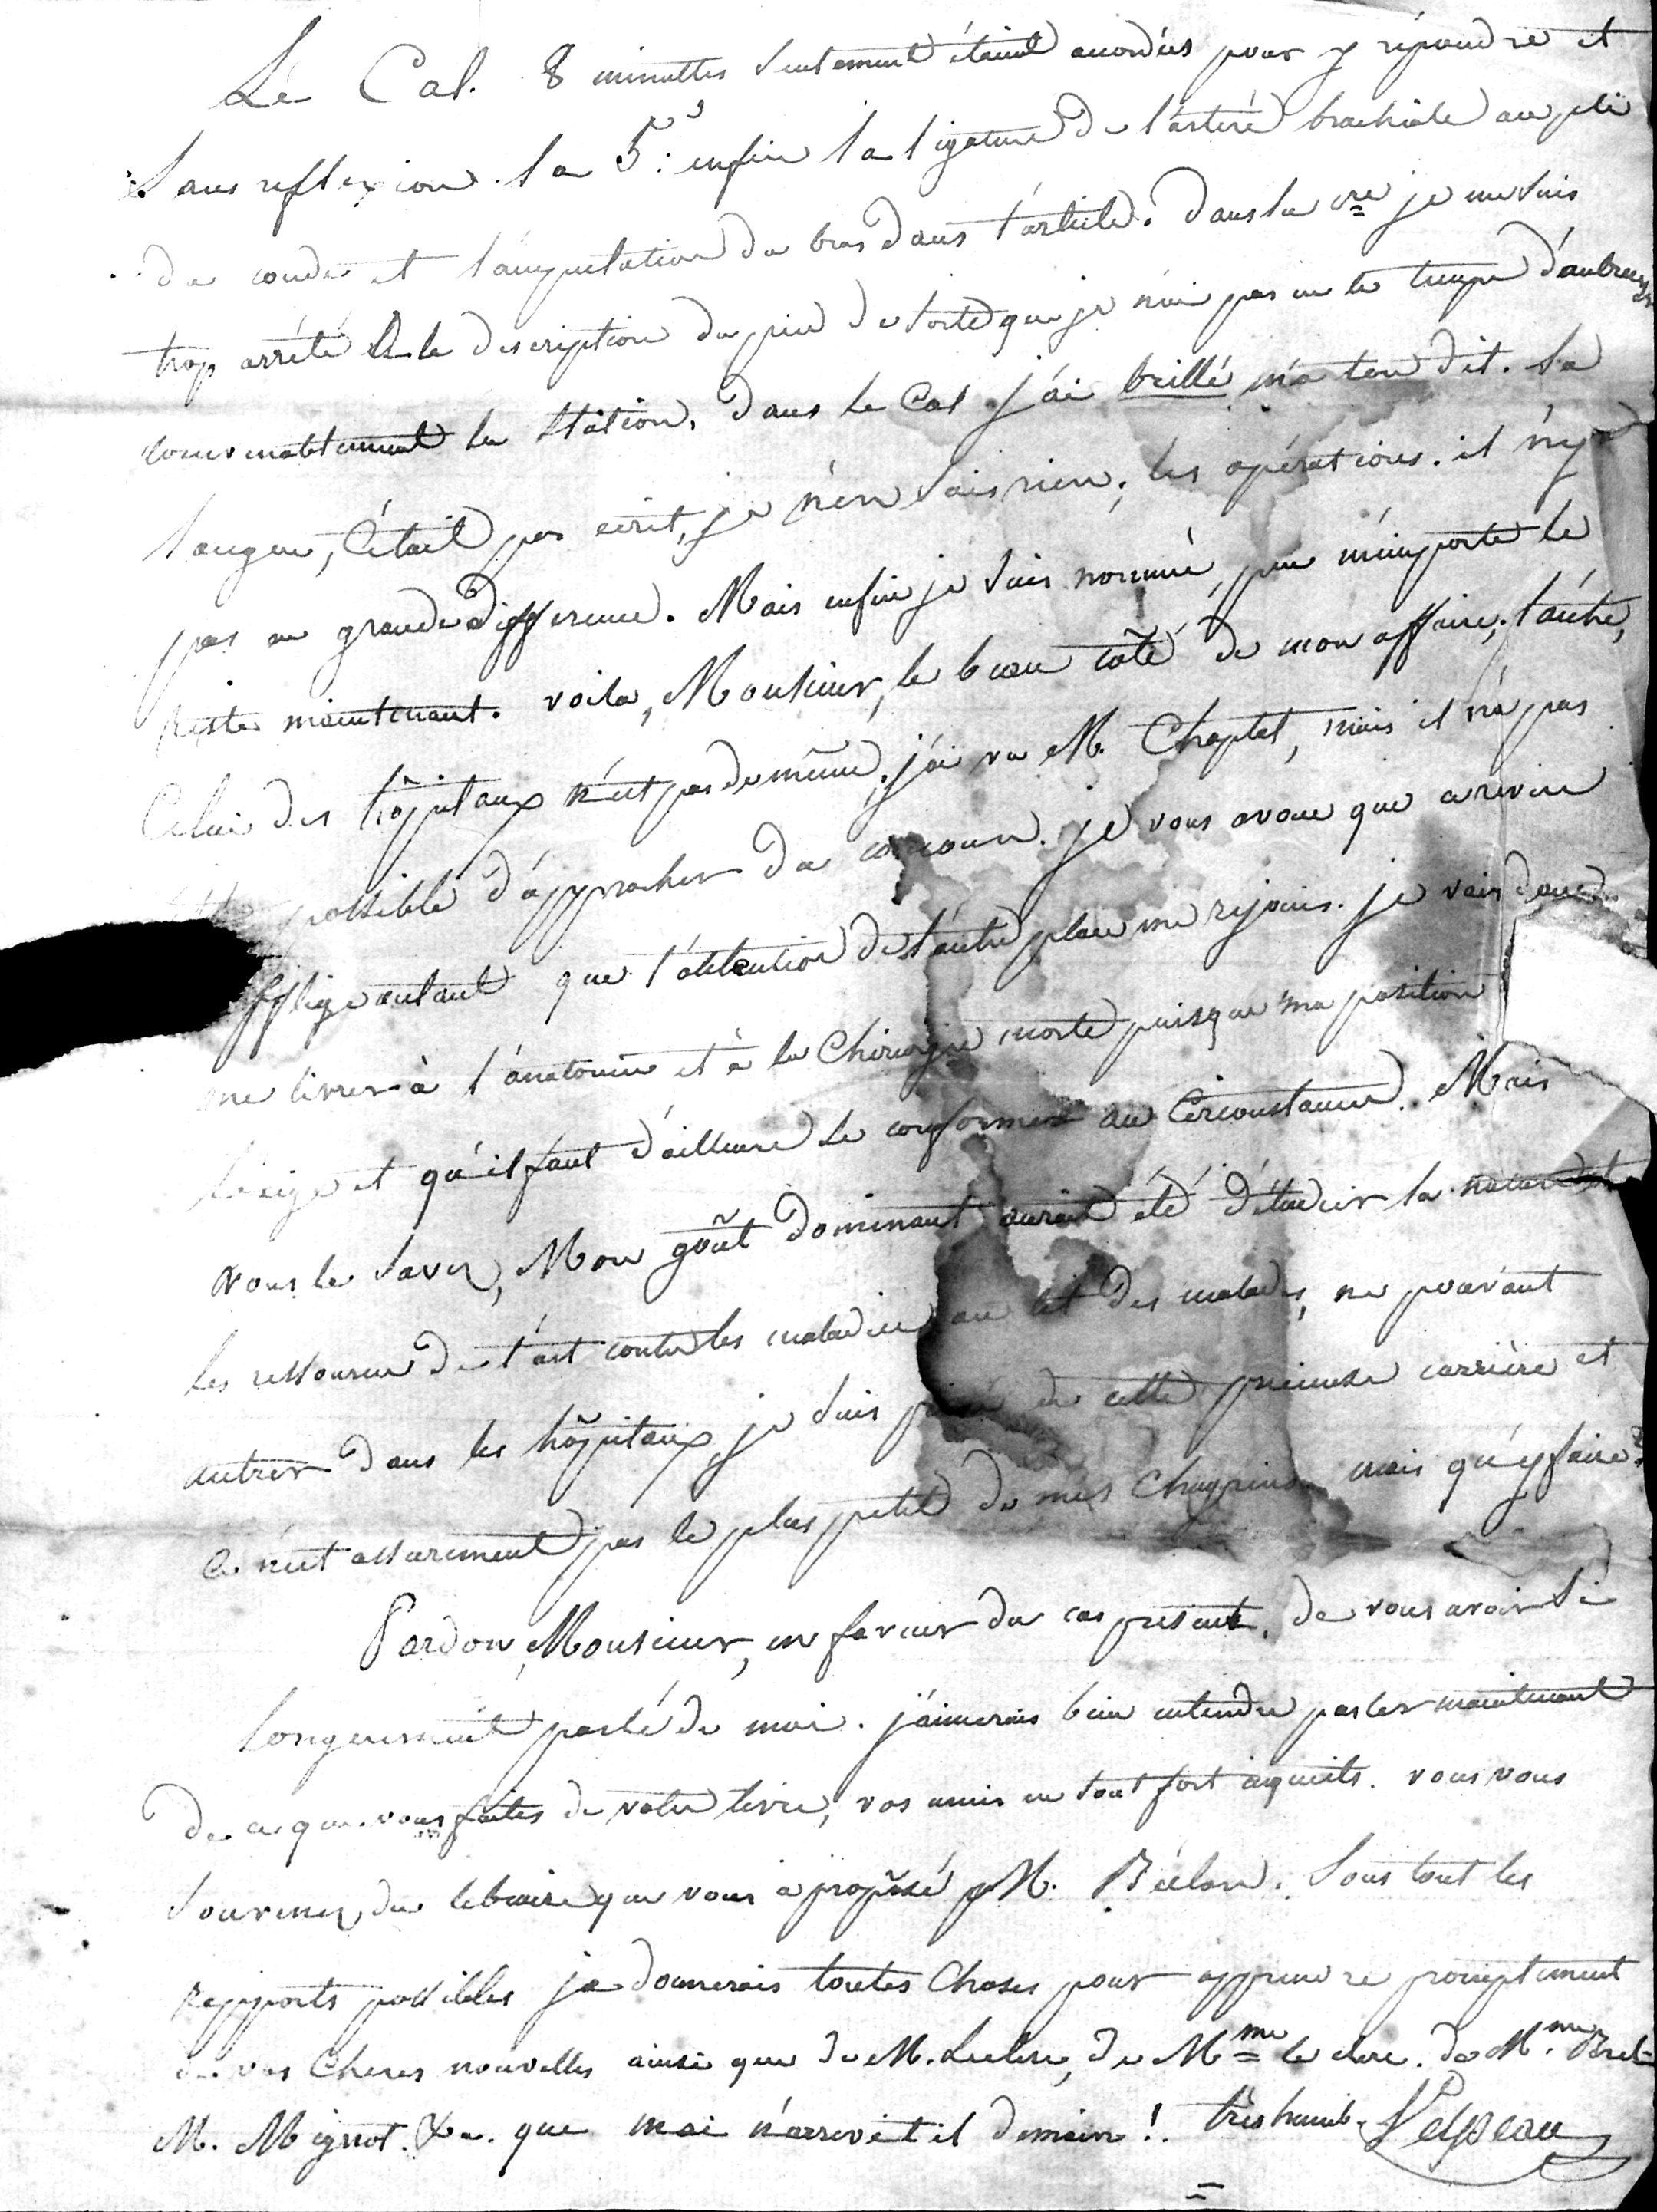 Le Cal. 8 minuttes seulement étaient accordées pour y répondre et
sans reflexion. la 5e: enfin la ligature de l'artère brachiale au pli
du coude et l'amputation du bras dans l'article. dans la 1re je me suis
trop arrêté à la description du pied de sorte que je n'ai pas eu le temps d'aubrer
convenablement la station. dans le Cal j'ai brillé m'a ton dit. la
langue, c'était par écrit, je n'en sais rien; les opérations. il n'y a
pas eu grande difference. Mais enfin je suis nommé, peu m'importe le
reste maintenant. voila, Monsieur, le beau côté de mon affaire, l'autre,
Celui des hôpitaux n'est pas de même. j'ai vu M. Chaptal, mais il n'a pas
possible d'approcher du concours. je vous avoue que ce revire
afflige autant que l'obtention de l'autre place me rejouis. je vais donc
me livrer à l'anatomie et à la Chirurgie morte puisque ma position
l'exige et qu'il faut d'ailleurs se conformer au Circonstance. Mais
vous le savez, Mon goût dominant aurait été d'étudier la nature et
les ressources de l'art contre les maladies au lit des malades, ne pouvant
entrer dans les hôpitaux, je suis privé de cette precieuse carrière et
ce n'est assurement pas le plus petit de mes chagrins mais qu'y faire?
Pardon, Monsieur, en faveur du cas present, de vous avoir si
longuement parlé de moi. j'aimerais bien entendre parler maintenant
de ce que vous faites de votre livre, vos amis en sont fort inquiets. vous vous
souvenez du libraire que vous a proposé M. Béclard. Sous tout les
rapports possibles je donnerais toutes Choses pour apprendre promptement
de vos Cheres nouvelles ainsi que de M. Leclerc, de Mme le clerc. de Mme Bret
M. Mignot. &a. que mai n'arrive-t-il demain!. très humb. Velpeau